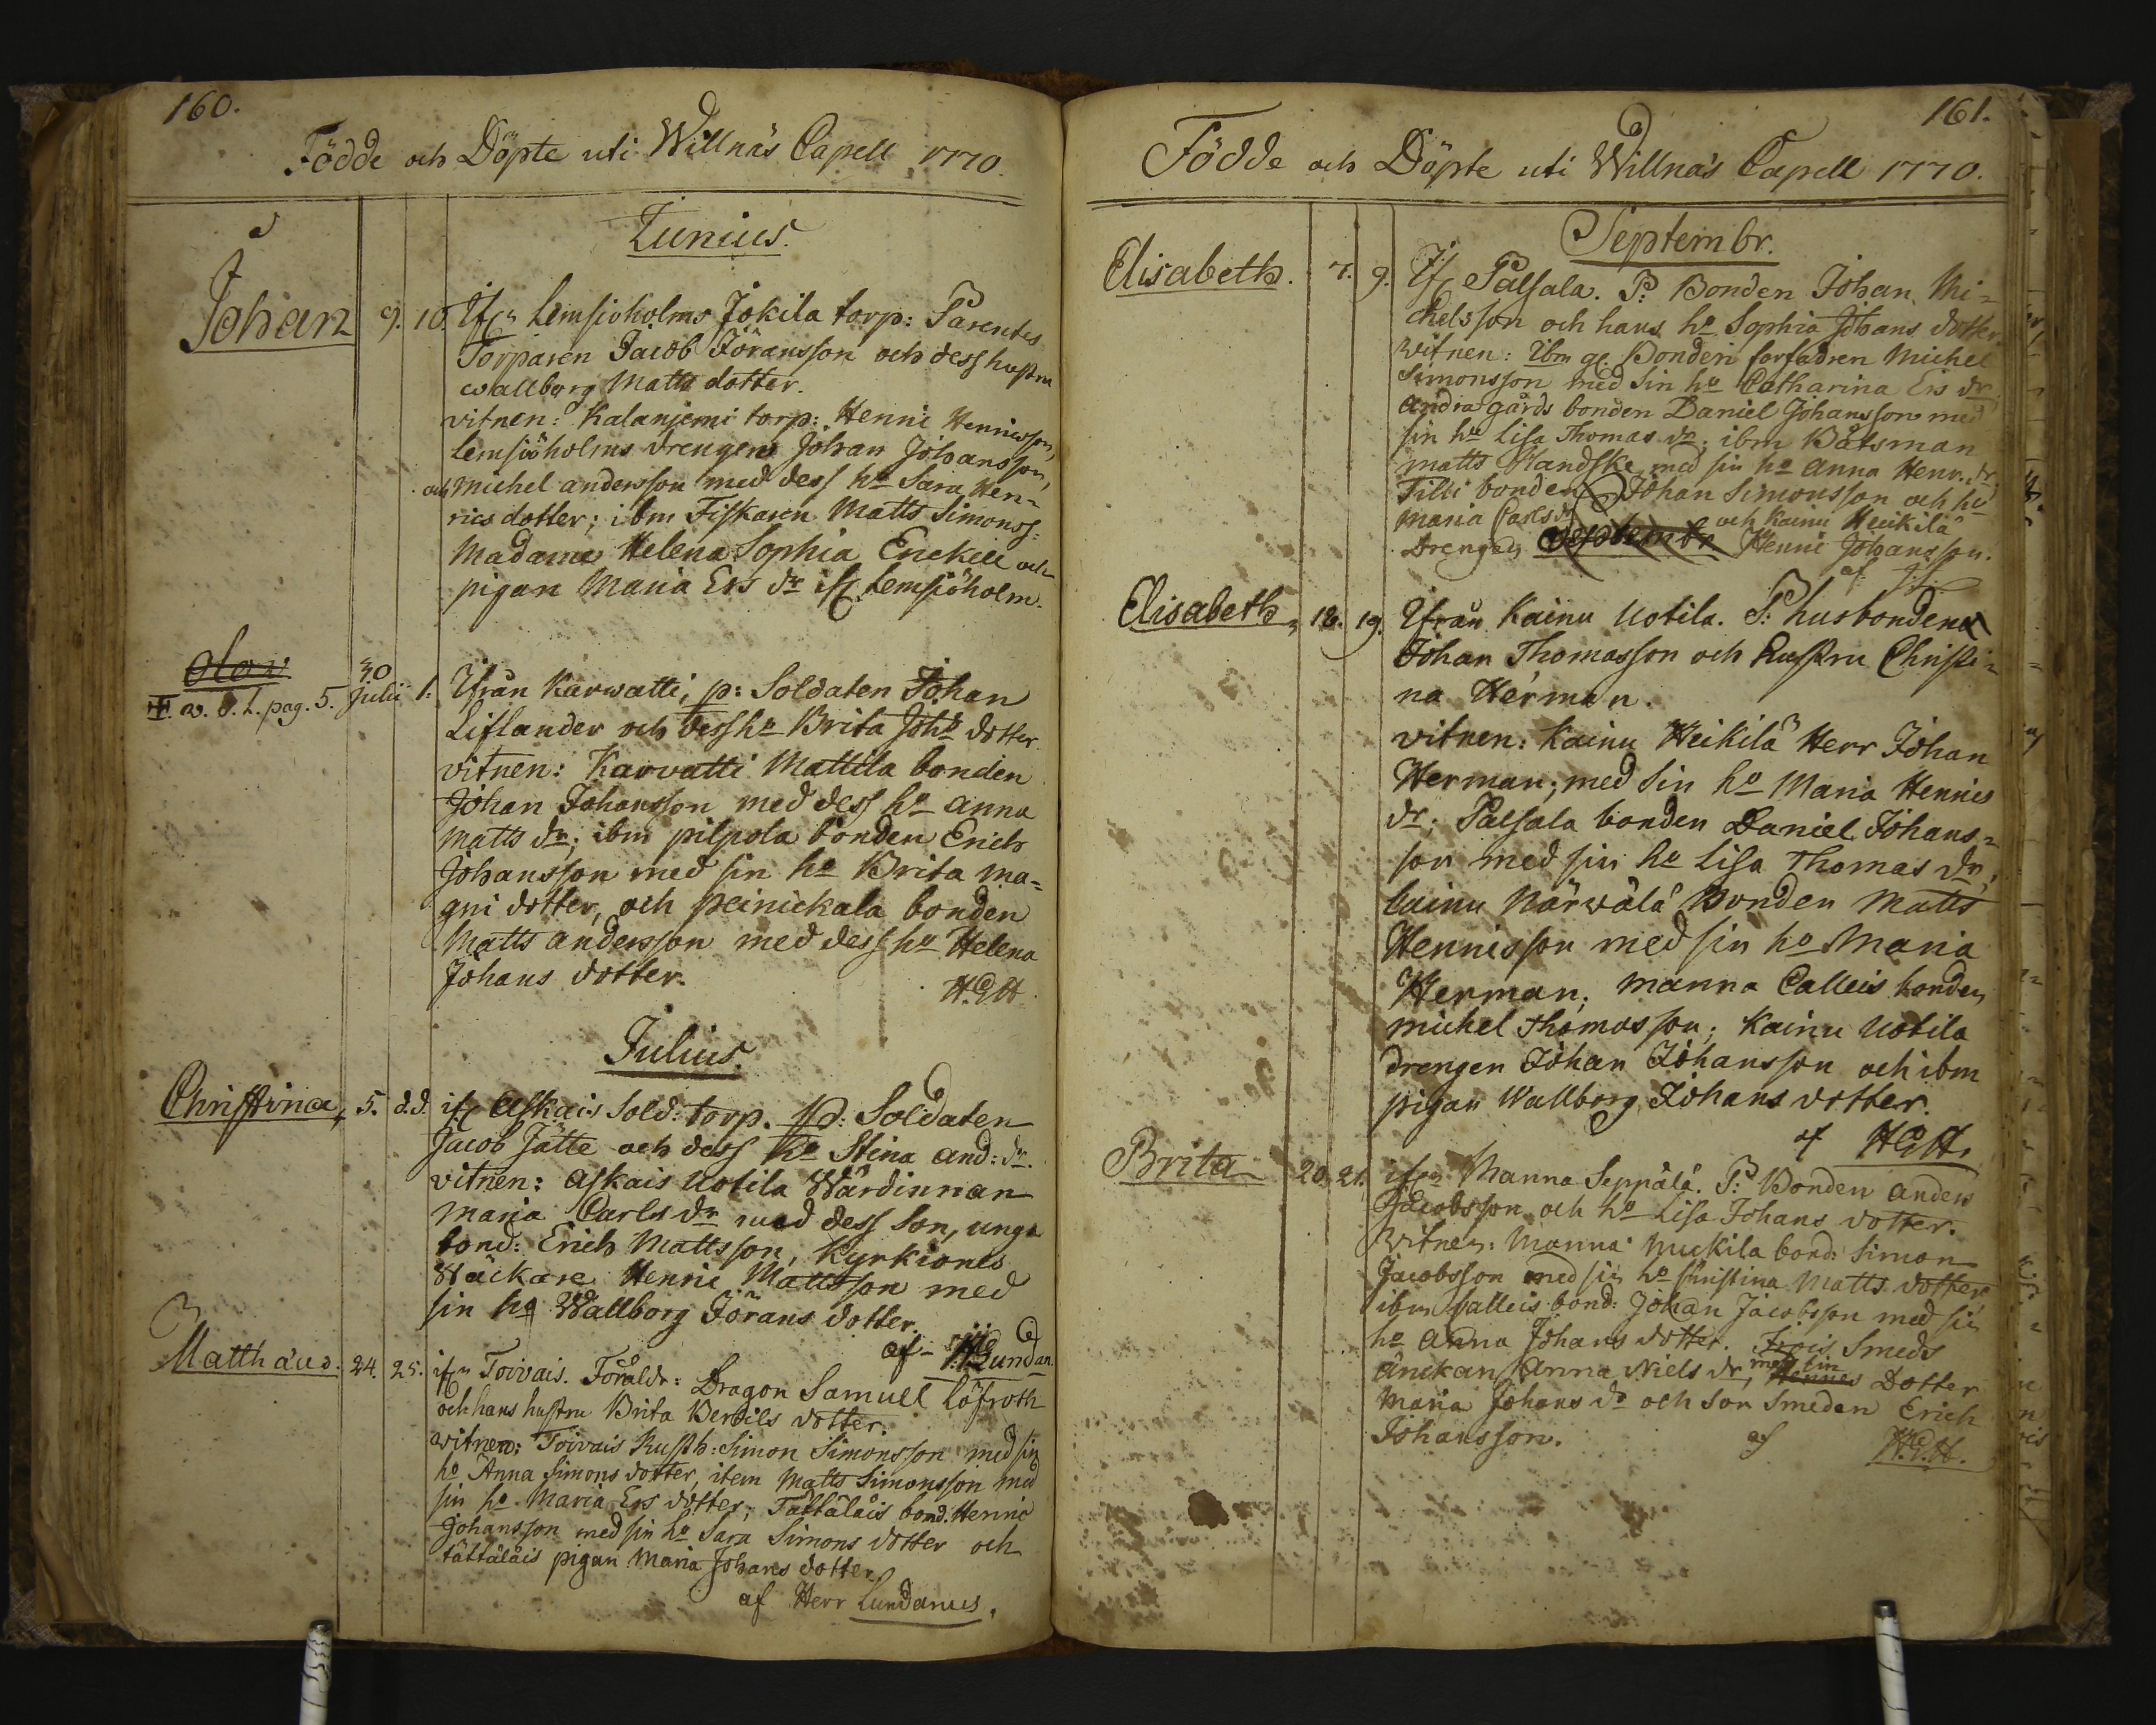 160.
Födde och Döpte uti Willnäs Capell 1770.
Junius.
Johan 9. 10. Ifrn Lemsioholms Jokila torp: Parentes
Torparen Jacob Jöransson och dess hustru
Wallborg Matts dotter.
vitnen: Kalaniemi torp: Henric Henricsson,
Lemsiöholms drengen Johan Johansson,
och Michel andersson med dess ho Sara Hen-
rics dotter; ibm Fiskaren Matts Simonss:
Madame Helena Sophia Enckell och
pigan Maria Ers dr ifr Lemsiöholm.
Olov 30
v. S. L. pag. 5. Julii 1. Ifrån Karwatti, p: Soldaten Johan
Liflander och dess ho Brita Johs dotter
vitnen: Karvatti Mattila bonden
Johan Johansson med dess ho anna
Matts dr; ibm pilpola bonden Erich
Johansson med sin ho Brita Ma-
gni dotter, och peinickala bonden
Matts andersson med dess ho Helena
Johans dotter.
H.E.H.
Julius.
Christina, 5. d.d. ifr Askais Sold: torp. p: Soldaten
Jacob Jätte och dess ho Stina and: dr.
vitnen: Askais Uotila Wärdinnan
Maria Carls dr med dess Son, unga
bond: Erich Mattsson, Kyrkiones
Wäckare Henric Mattsson med
sin ho Wallborg Jörans dotter.
af Lundan.
Matthäus. 24. 25. ifrn Toivais. Föräldr: Dragon Samuel Löfroth
och hans hustru Brita Bertils dotter.
witnen: Toivais Rusth: Simon Simonsson med sin
ho Anna Simons dotter, item Matts Simonsson med
sin ho Maria Ers dotter; Tattäläis bond. Henric
Johansson med sin ho Sara Simons dotter och
tättäläis pigan Maria Johans dotter.
af Herr Lundanus.
161.
Födde och Döpte uti Willnäs Capell 1770.
Septembr.
Elisabeth. 7. 9. If Palsala. P: Bonden Johan Mi-
chelsson och hans ho Sophia Johans dotter
witnen: Ibm gl. Bonden farfadren Michel
Simonsson med sin ho Catharina Ers dr
andra gårds bonden Daniel Johansson med
sin ho Lisa Thomas dr; ibm Båtsman
Matts Handske med sin ho Anna Henr. dr
Tilli bonden Johan Simonsson och ho
Maria Carls dr och Kainu Heikilä
Drengen Septembr Henric Johansson.
af
Elisabeth, 18. 19. Ifrån Kainu Uotila. P: husbonden
Johan Thomasson och hustru Christi-
na Herman.
vitnen: Kainu Heikilä Herr Johan
Herman; med sin ho Maria Henrics
dr; Palsala bonden Daniel Johans-
son med sin ho Lisa Thomas dr,
Cainu Närwälä Bonden Matts
Henrisson med sin ho Maria
Herman; Manna Calleis bonden
Michel Thomasson; Kainu Uotila
drengen Johan Johansson och ibm
pigan Wallborg Johans dotter.
af H.E.H.
Brita 20. 21. ifrn Manna Seppälä. P: Bonden anders
Jacobsson och ho Lisa Johans dotter.
Witnen: Manna Nuckila bond: Simon
Jacobsson med sin ho Christina Matts dotter
ibm Calleis bond: Johan Jacobsson med sin
ho Anna Johans dotter. Frois Smeds
änckan Anna Niels dr, med sin Hennes Dotter
Maria Johans dr och Son Smeden Erich
Johansson. af H.E.H.